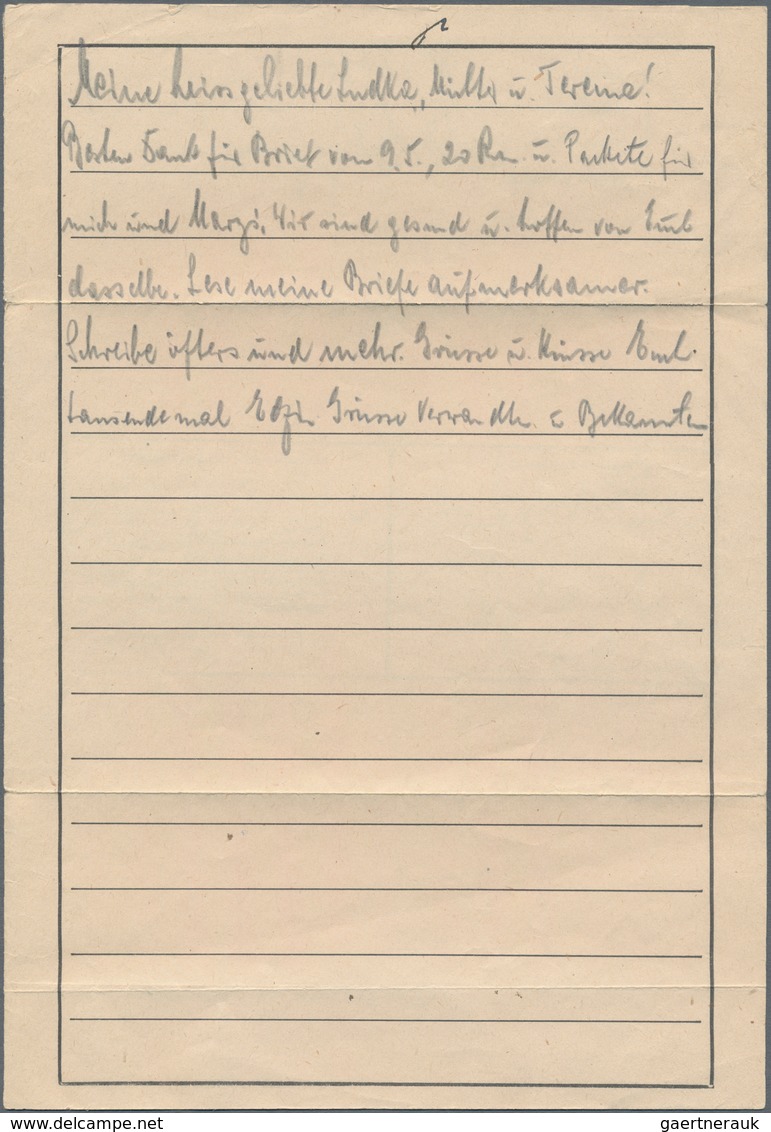 Meine heissgeliebte Ludka, Mutter u. Terenia!
Besten Dank für Brief vom 9.5., 20 Rm. u. Packete für
mich und Marys. Wir sind gesund u. hoffen von Euch
dasselbe. Lese meine Briefe aufmerksamer.
Schreibe öfters und mehr. Grüsse u. Küsse Euch
tausendemal Grüsse Verwandte. u Bekannten
delcampe.net
gaertnerauk